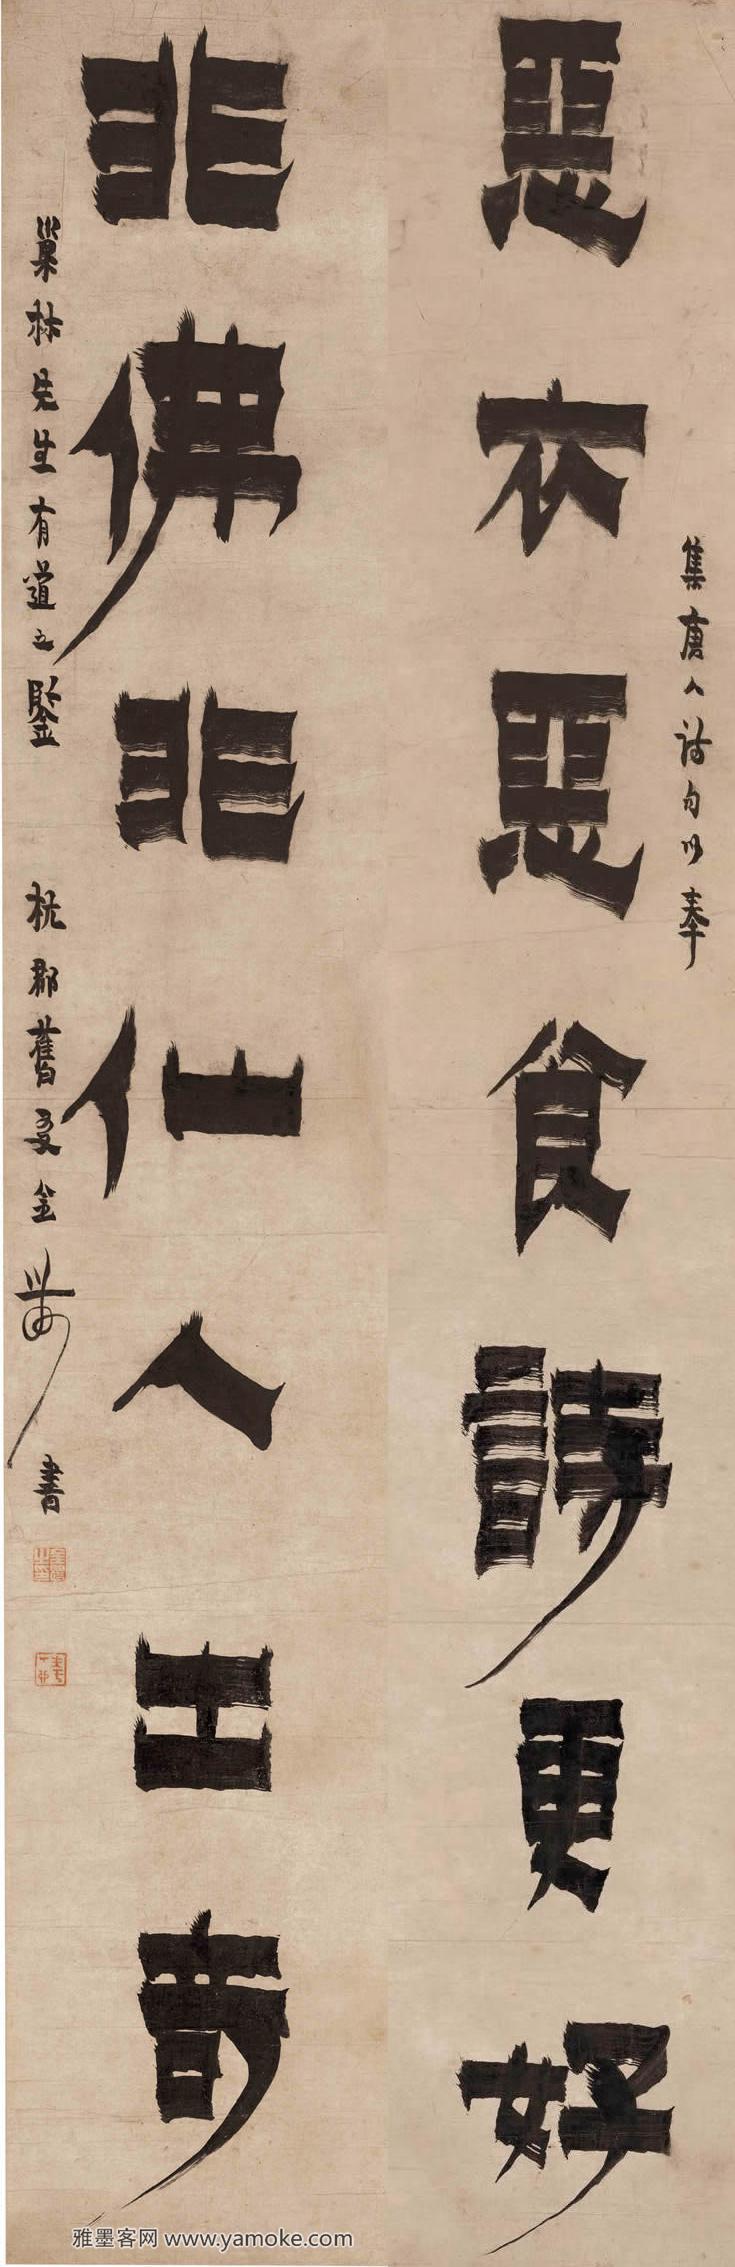 集唐人詩句以奉
惡衣惡食詩更好
非佛非仙人出奇
巢林先生有道之鑒
杭郡舊友金農書
雅墨客网 www.yamoke.com